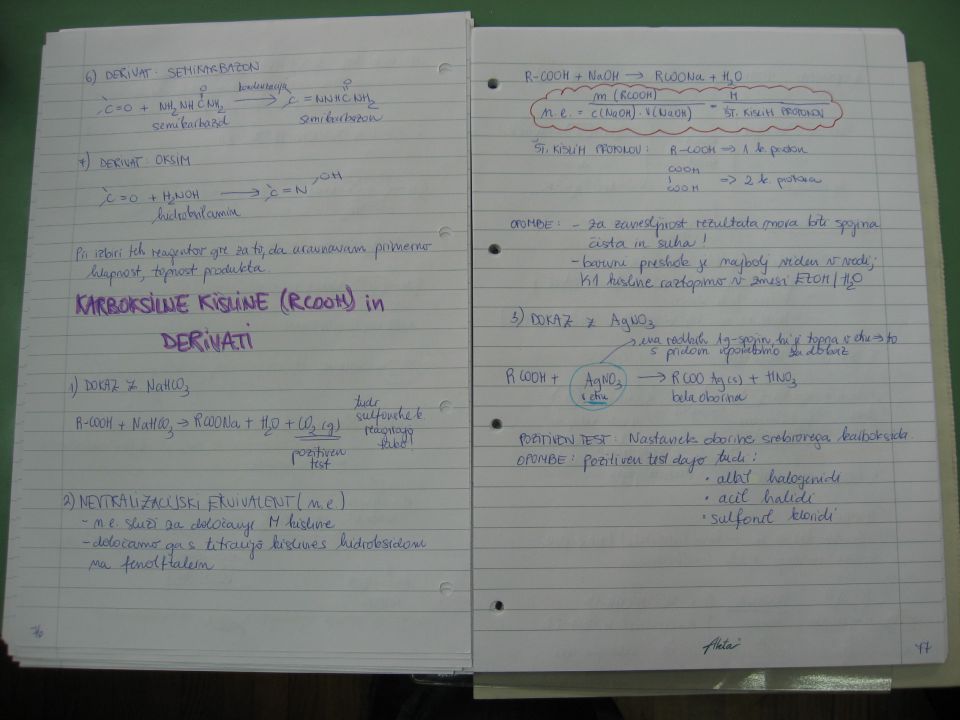 6) DERIVAT: SEMIKARBAZON
kondenzacija
C=O + NH2NHCNH2 → C=NNHCNH2
O O
semikarbazid semikarbazon
7) DERIVAT: OKSIM
C=O + H2NOH → C=N OH
hidroksilamin
Pri izbiri teh reagentov gre za to, da uravnavam primerno
hlapnost, topnost produkta.
KARBOKSILNE KISLINE (RCOOH) in
DERIVATI
1) DOKAZ Z NaHCO3
R-COOH + NaHCO3 → RCOONa + H2O + CO2 (g)
pozitiven
test
tudi
sulfonske k.
reagirajo
tako!
2) NEVTRALIZACIJSKI EKVIVALENT (n.e)
- n.e. služi za določanje M kisline
- določamo ga s titracijo kisline s hidroksidom
na fenolftalein
76
R-COOH + NaOH → RCOONa + H2O
n.e. = m (RCOOH) / c(NaOH) · V(NaOH) = M / ŠT. KISLIH PROTONOV
ŠT. KISLIH PROTONOV: R-COOH ⇒ 1 k. proton
COOH
COOH ⇒ 2 k. protona
OPOMBE: - za zanesljivost rezultata mora biti spojina
čista in suha!
- barvni preskok je najbolj viden v vodi;
K1 kisline raztopimo v zmesi EtOH/H2O
3) DOKAZ Z AgNO3
ena redkih Ag-spojin, ki je topna v etru ⇒ to
s pridom uporabimo za dokaz
RCOOH + AgNO3 → RCOOAg(s) + HNO3
v etru bela oborina
POZITIVEN TEST: Nastanek oborine srebrovega karboksida.
OPOMBE: pozitiven test dajo tudi:
• alkil halogenidi
• acil halidi
• sulfonil kloridi
77